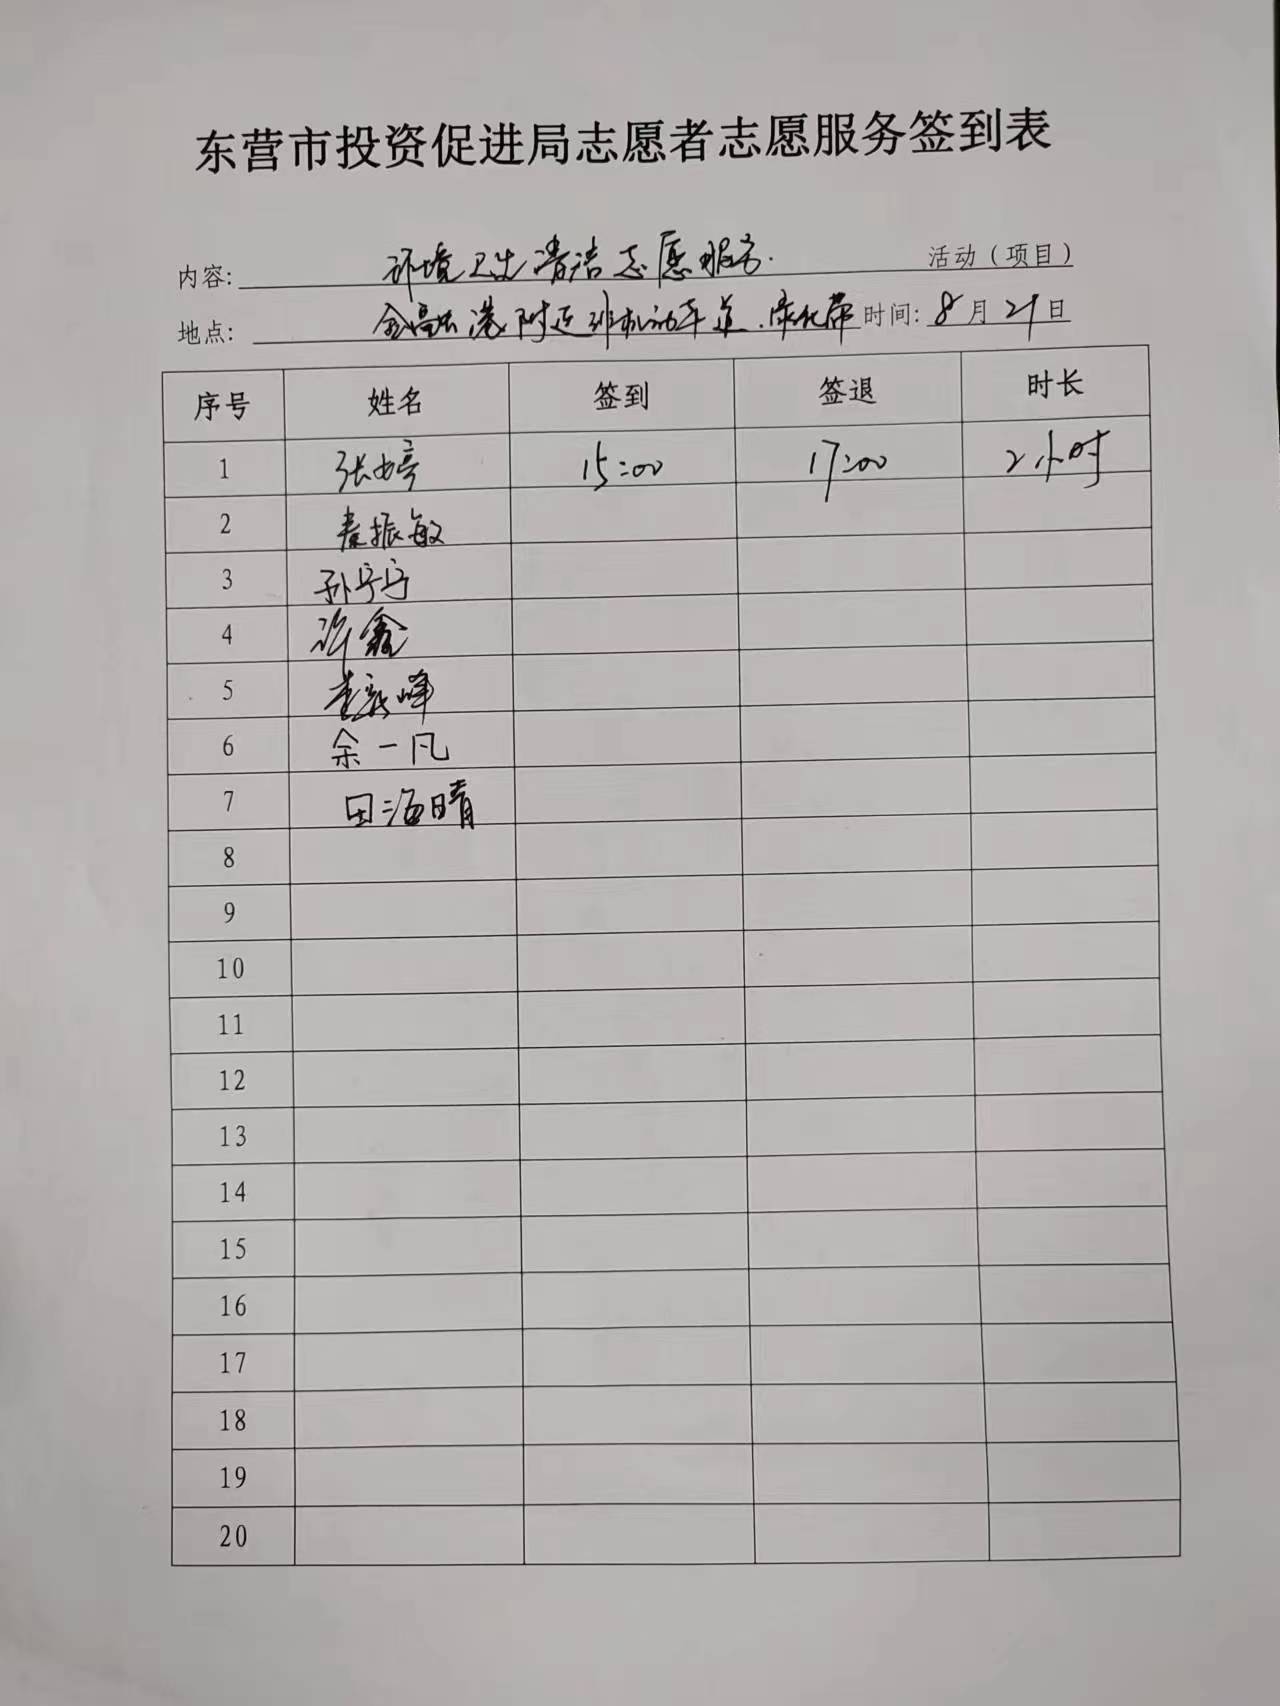 东营市投资促进局志愿者志愿服务签到表
内容: 环境卫生清洁志愿服务. 活动（项目）
地点: 金 港附近非机动车道.绿化带 时间: 8月29日
序号 姓名 签到 签退 时长
1 张婷 15:00 17:00 2小时
2 秦振敏
3 孙宁宁
4 许鑫
5 峰
6 余一凡
7 田海晴
8
9
10
11
12
13
14
15
16
17
18
19
20